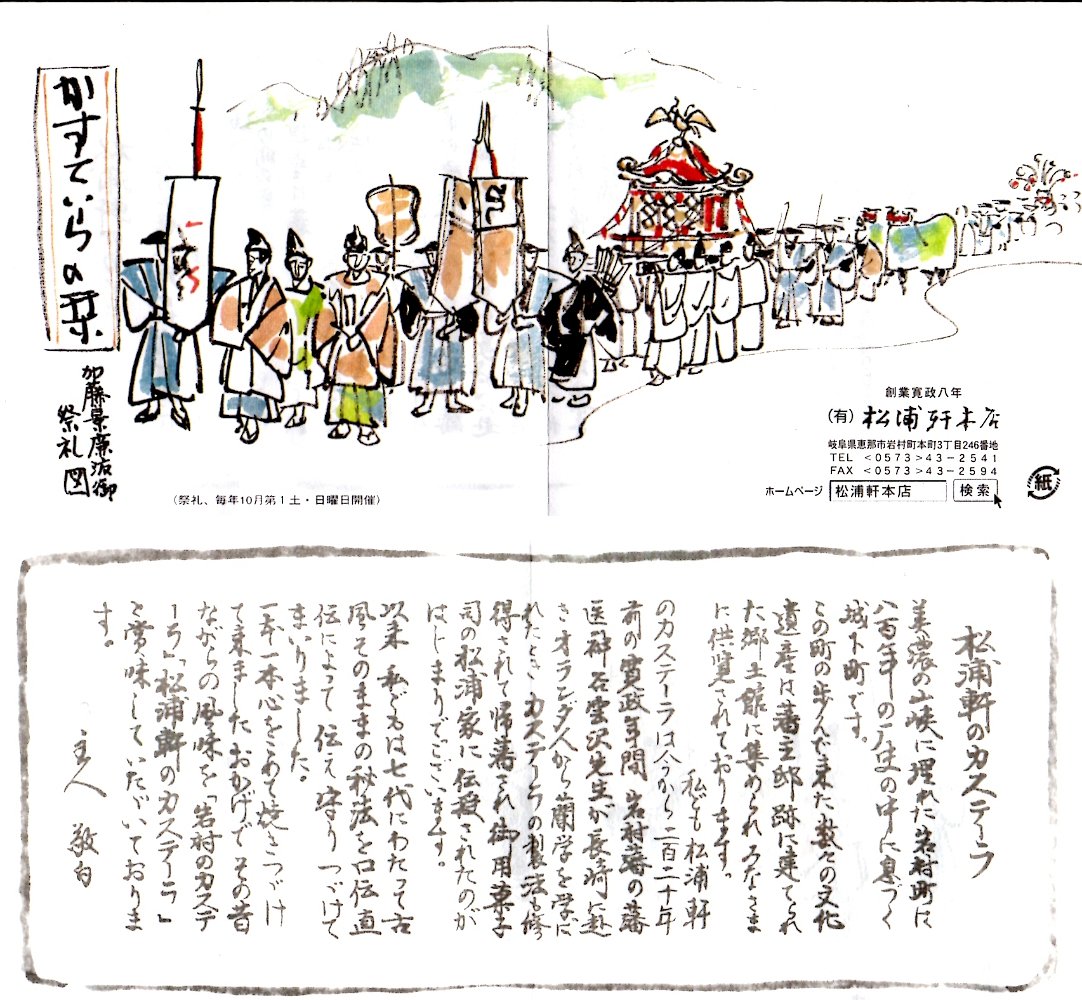 かすていらの栞
加藤景廉公御
祭礼図
(祭礼、毎年10月第1土・日曜日開催)
創業寛政八年
(有) 松浦軒本店
岐阜県恵那市岩村町本町3丁目246番地
TEL <0573>43-2541
FAX <0573>43-2594
ホームページ 松浦軒本店 検索
紙
松浦軒のカステーラ
美濃の山峡に埋れた岩村町は
八百年の歴史の中に息づく
城下町です。
この町の歩んだ来た数々の文化
遺産は藩主邸跡に建てられ
た郷土館に集められみなさま
に供覧されております。
私ども松浦軒
のカステーラは今から二百二十年
前の寛政年間 岩村藩の藩
医神谷雲沢先生が長崎に赴
きオランダ人から蘭学を学ば
れたとき カステーラの製法も修
得されて帰藩され御用菓子
司の松浦家に伝授されたのが
はじまりでございます。
以来 私どもは七代にわたって古
風そのままの秘法を口伝直
伝によって伝え守りつづけて
まいりました。
一本一本心をこめて焼きつづけ
て来ましたおかげでその昔
ながらの風味を「岩村のカステ
ーラ」「松浦軒のカステーラ」
と賞味していたゞいておりま
す。
主人 敬白